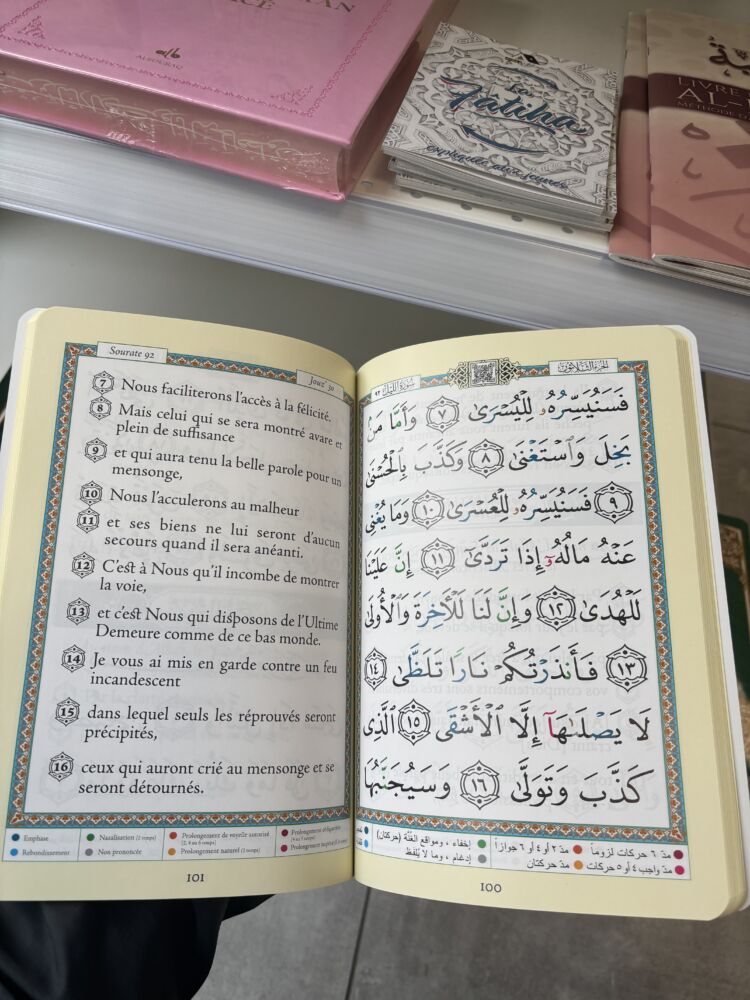 ALBOURAQ
La
Fâtiha
expliquée aux jeunes
LIVRE
AL-
Sourate 92
Jouz' 30
7 Nous faciliterons l'accès à la félicité.
8 Mais celui qui se sera montré avare et
plein de suffisance
9 et qui aura tenu la belle parole pour un
mensonge,
10 Nous l'acculerons au malheur
11 et ses biens ne lui seront d'aucun
secours quand il sera anéanti.
12 C'est à Nous qu'il incombe de montrer
la voie,
13 et c'est Nous qui disposons de l'Ultime
Demeure comme de ce bas monde.
14 Je vous ai mis en garde contre un feu
incandescent
15 dans lequel seuls les réprouvés seront
précipités,
16 ceux qui auront crié au mensonge et se
seront détournés.
Emphase
Nasalisation (2 temps)
Prolongement de voyelle autorisé
(2, 4 ou 6 temps)
Prolongement obligatoire
(4 ou 5 temps)
Rebondissement
Non prononcée
Prolongement naturel (2 temps)
101
الجزء الثلاثون
سورة الليل ٩٢
فَسَنُيَسِّرُهُۥ لِلْيُسْرَىٰ ٧ وَأَمَّا مَنۢ
بَخِلَ وَٱسْتَغْنَىٰ ٨ وَكَذَّبَ بِٱلْحُسْنَىٰ
٩ فَسَنُيَسِّرُهُۥ لِلْعُسْرَىٰ ١٠ وَمَا يُغْنِى
عَنْهُ مَالُهُۥٓ إِذَا تَرَدَّىٰٓ ١١ إِنَّ عَلَيْنَا
لَلْهُدَىٰ ١٢ وَإِنَّ لَنَا لَلْـَٔاخِرَةَ وَٱلْأُولَىٰ
١٣ فَأَنذَرْتُكُمْ نَارًا تَلَظَّىٰ ١٤
لَا يَصْلَىٰهَآ إِلَّا ٱلْأَشْقَى ١٥ ٱلَّذِى
كَذَّبَ وَتَوَلَّىٰ ١٦ وَسَيُجَنَّبُهَا
مدّ ٦ حركات لزوماً
مدّ ٢ أو ٤ أو ٦ جوازاً
إخفاء ، ومواقع الغُنَّة (حركتان)
مدّ واجب ٤ أو ٥ حركات
مدّ حركتان
إدغام ، وما لا يُلفظ
100